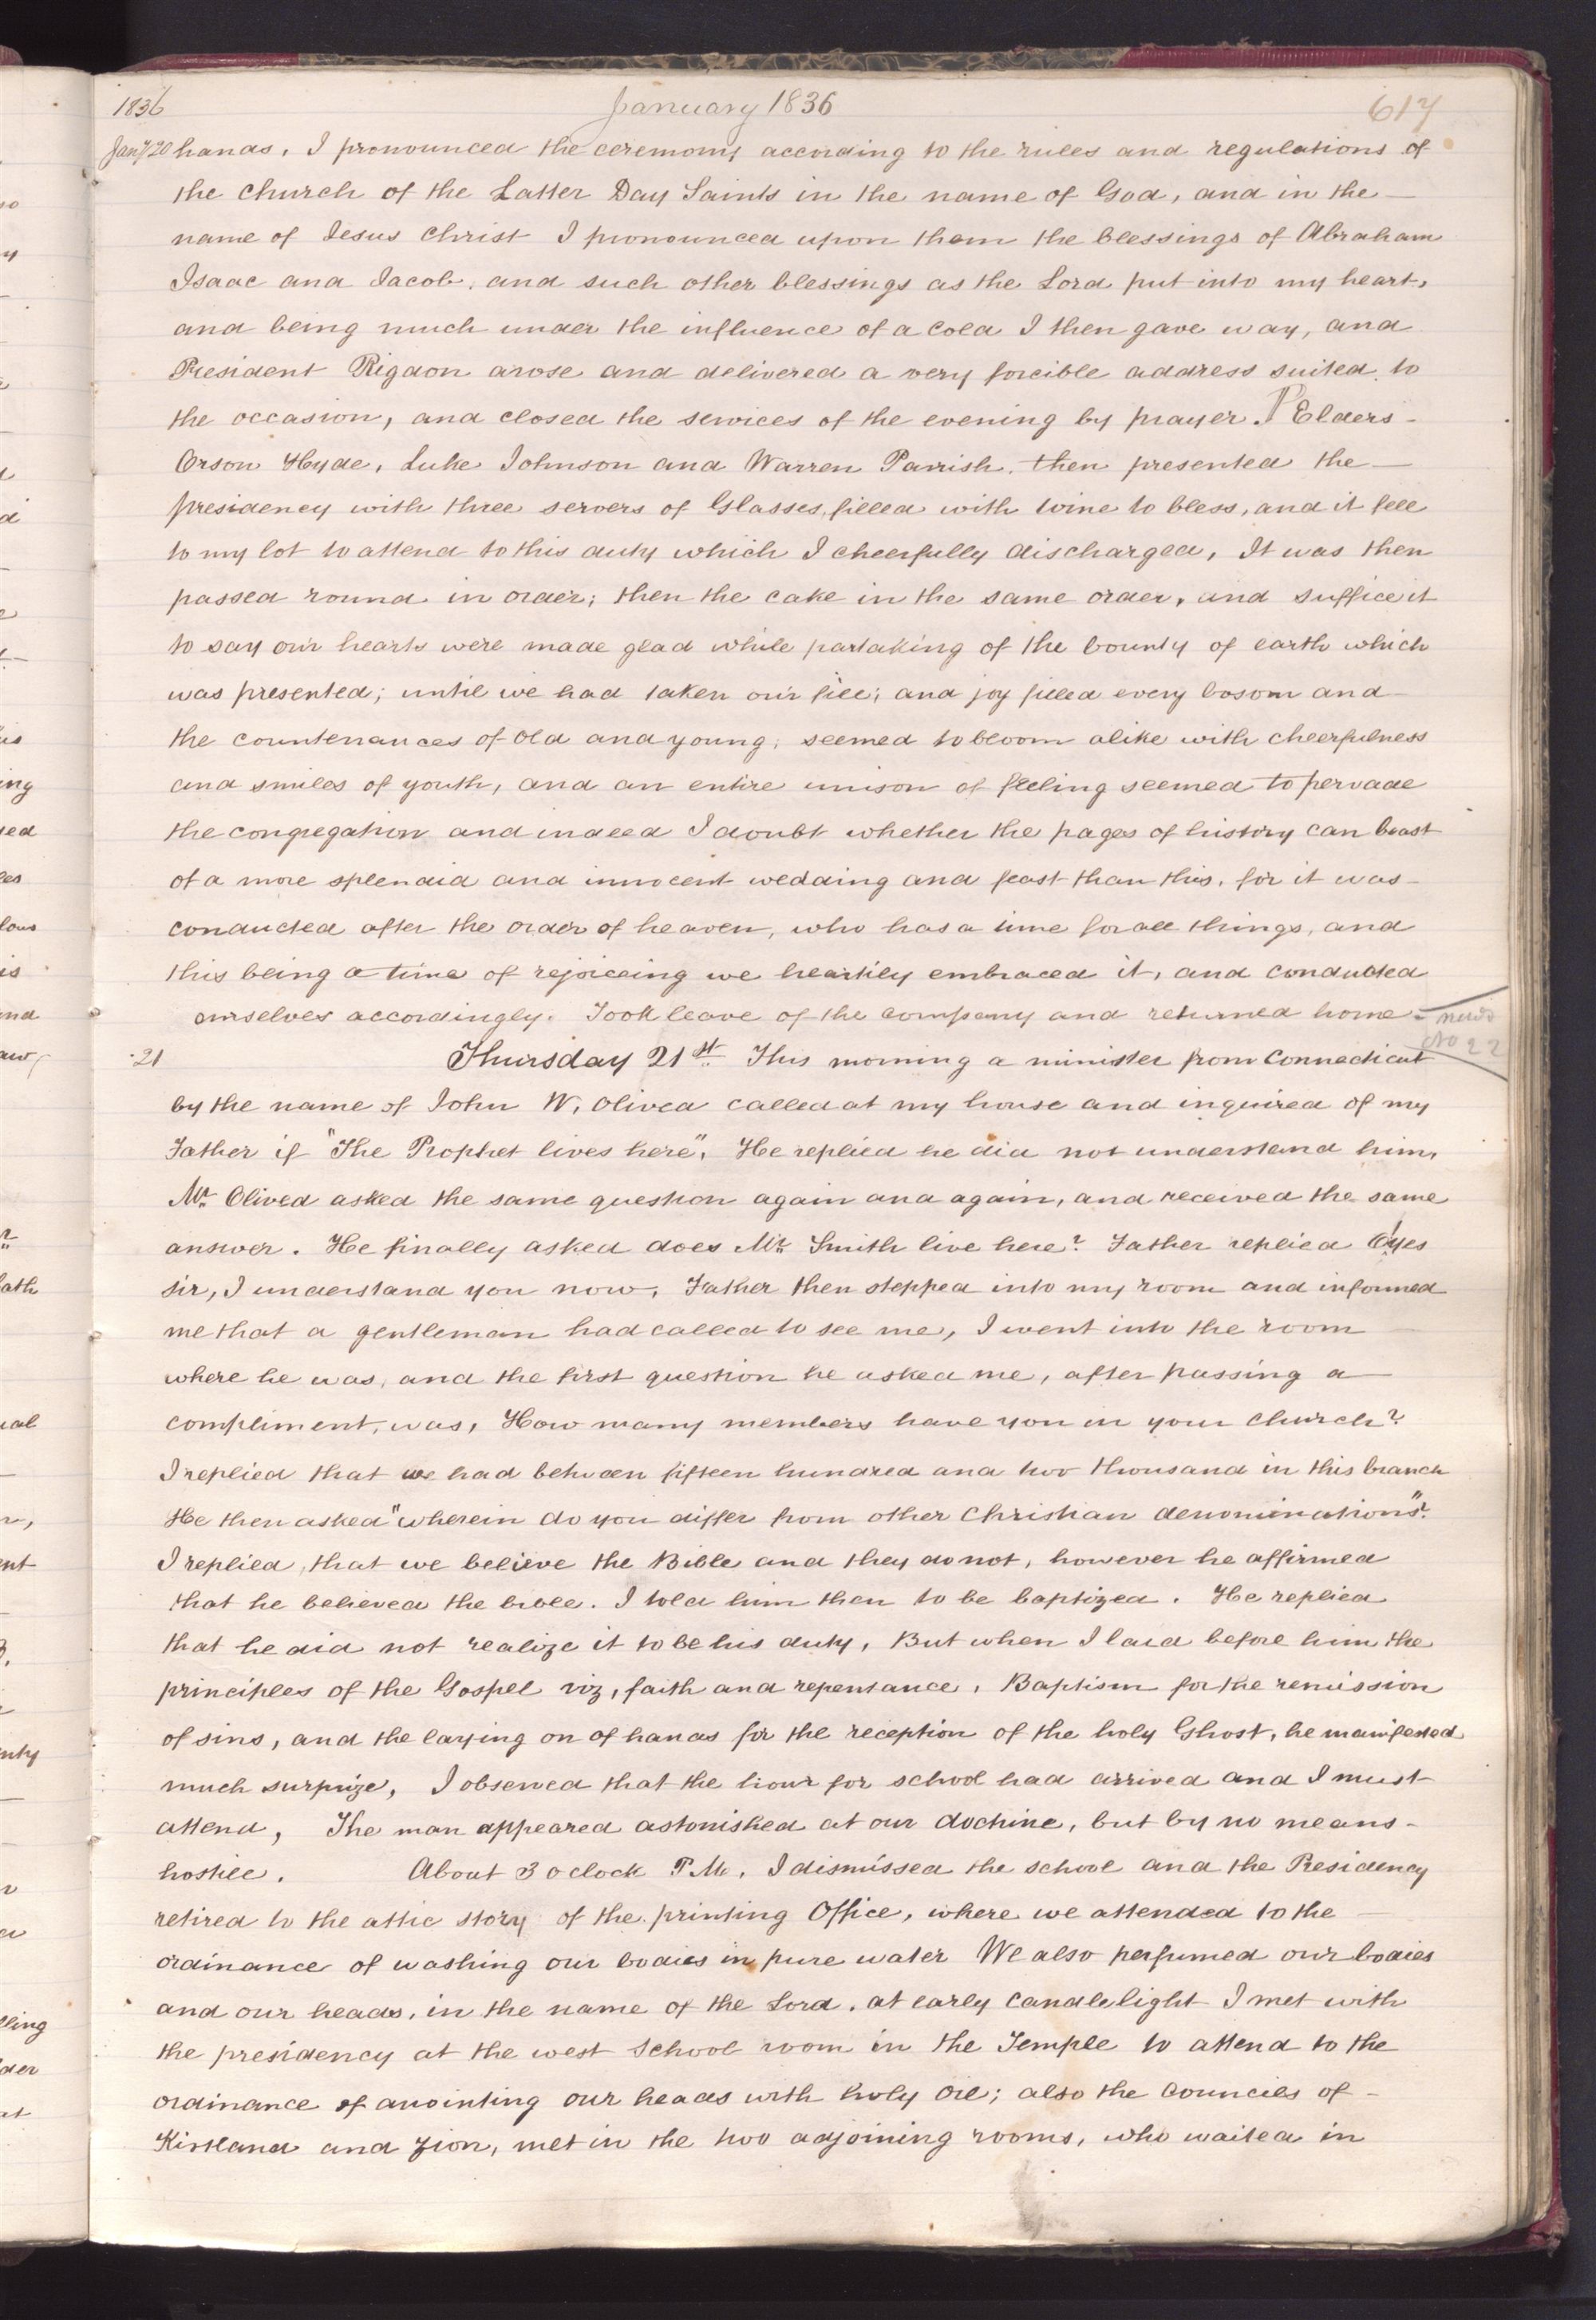 1836 January 1836 617
Jany 20 hands. I pronounced the ceremony according to the rules and regulations of
the church of the Latter Day Saints in the name of God, and in the
name of Jesus Christ I pronounced upon them the blessings of Abraham
Isaac and Jacob, and such other blessings as the Lord put into my heart,
and being much under the influence of a cold I then gave way, and
President Rigdon arose and delivered a very forcible address suited to
the occasion, and closed the services of the evening by prayer. ¶ Elders
Orson Hyde, Luke Johnson and Warren Parrish, then presented the
presidency with three servers of Glasses filled with wine to bless, and it fell
to my lot to attend to this duty which I cheerfully discharged, It was then
passed round in order; then the cake in the same order, and suffice it
to say our hearts were made glad while partaking of the bounty of earth which
was presented; until we had taken our fill; and joy filled every bosom and
the countenances of old and young, seemed to bloom alike with cheerfulness
and smiles of youth, and an entire unison of feeling seemed to pervade
the congregation and indeed I doubt whether the pages of history can boast
of a more splendid and innocent wedding and feast than this, for it was
conducted after the order of heaven, who has a time for all things, and
this being a time of rejoiceing we heartily embraced it, and conducted
ourselves accordingly. Took leave of the company and returned home
news
No 22
21 Thursday 21st This morning a minister from Connecticut
by the name of John W. Olived called at my house and inquired of my
Father if "The Prophet lives here", He replied he did not understand him,
Mr. Olived asked the same question again and again, and received the same
answer. He finally asked does Mr Smith live here? Father replied O! yes
sir, I understand you now, Father then stepped into my room and informed
me that a gentleman had called to see me, I went into the room
where he was, and the first question he asked me, after passing a
compliment, was, How many members have you in your church?
I replied that we had between fifteen hundred and two thousand in this branch
He then asked "wherein do you differ from other christian denominations"?
I replied, that we believe the Bible and they do not, however he affirmed
that he believed the bible. I told him then to be baptized. He replied
that he did not realize it to be his duty, But when I laid before him the
principles of the Gospel viz, faith and repentance, Baptism for the remission
of sins, and the laying on of hands for the reception of the holy Ghost, he manifested
much surprize, I observed that the hour for school had arrived and I must
attend, The man appeared astonished at our doctrine, but by no means
hostile. About 3 oclock P.M. I dismissed the school and the Presidency
retired to the attic story of the printing Office, where we attended to the
ordinance of washing our bodies in pure water We also perfumed our bodies
and our heads, in the name of the Lord. at early candlelight I met with
the presidency at the west School room in the Temple to attend to the
ordinance of anointing our heads with holy oil; also the Councils of
Kirtland and Zion, met in the two adjoining rooms, who waited in